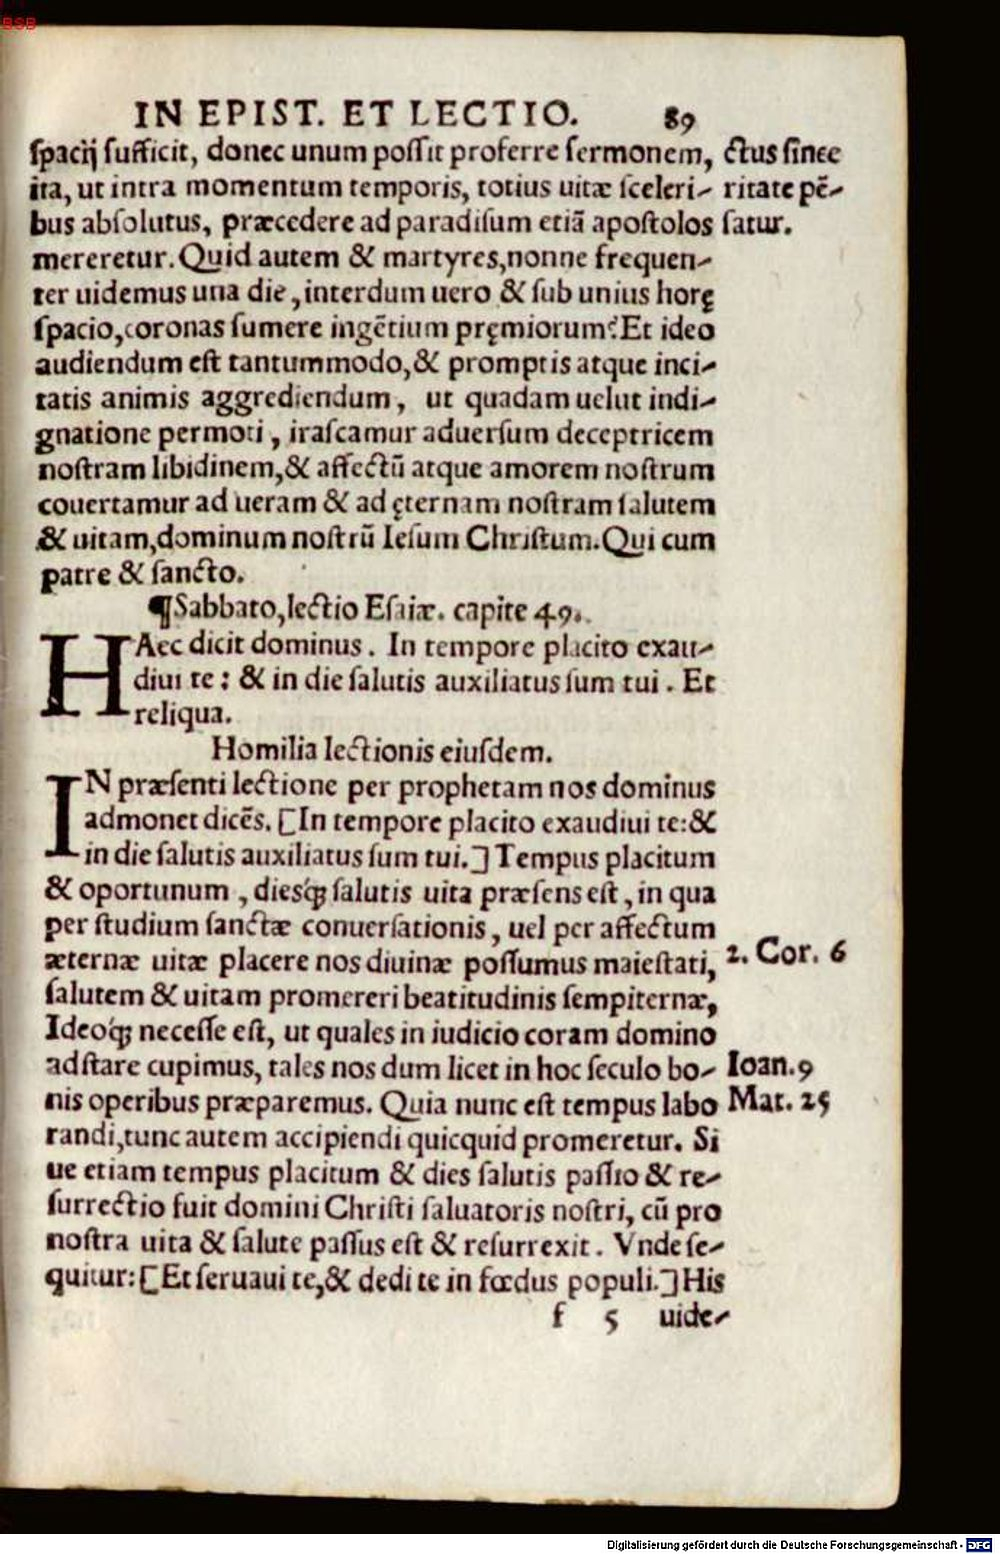 BSB
IN EPIST. ET LECTIO. 89
spacij sufficit, donec unum possit proferre sermonem, ctus since
ita, ut intra momentum temporis, totius uitæ sceleri- ritate pē-
bus absolutus, præcedere ad paradisum etiã apostolos satur.
mereretur. Quid autem & martyres, nonne frequen-
ter uidemus una die, interdum uero & sub unius horę
spacio, coronas sumere ingẽtium pręmiorum? Et ideo
audiendum est tantummodo, & promptis atque inci-
tatis animis aggrediendum, ut quadam uelut indi-
gnatione permoti, irascamur aduersum deceptricem
nostram libidinem, & affectũ atque amorem nostrum
couertamur ad ueram & ad ęternam nostram salutem
& uitam, dominum nostrũ Iesum Christum. Qui cum
patre & sancto.
¶Sabbato, lectio Esaiæ. capite 49.
HAec dicit dominus. In tempore placito exau-
diui te: & in die salutis auxiliatus sum tui. Et
reliqua.
Homilia lectionis eiusdem.
IN præsenti lectione per prophetam nos dominus
admonet dicẽs. [In tempore placito exaudiui te: &
in die salutis auxiliatus sum tui.] Tempus placitum
& oportunum, diesq́; salutis uita præsens est, in qua
per studium sanctæ conuersationis, uel per affectum
æternæ uitæ placere nos diuinæ possumus maiestati, 2. Cor. 6
salutem & uitam promereri beatitudinis sempiternæ,
Ideoq́; necesse est, ut quales in iudicio coram domino
adstare cupimus, tales nos dum licet in hoc seculo bo- Ioan. 9
nis operibus præparemus. Quia nunc est tempus labo Mat. 25
randi, tunc autem accipiendi quicquid promeretur. Si
ue etiam tempus placitum & dies salutis passio & re-
surrectio fuit domini Christi saluatoris nostri, cũ pro
nostra uita & salute passus est & resurrexit. Vnde se-
quitur: [Et seruaui te, & dedi te in fœdus populi.] His
f 5 uide-
Digitalisierung gefördert durch die Deutsche Forschungsgemeinschaft - DFG